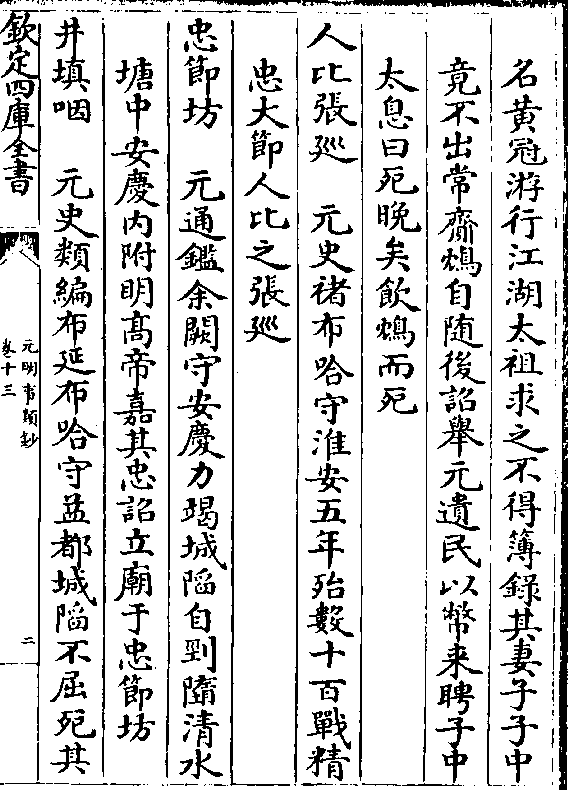 名黄冠游行江湖太祖求之不得簿錄其妻子子中
竟不出常齎鴆自随後詔舉元遺民以幣来聘子中
太息曰死晚矣飲鴆而死
人比張巡　元史禇布哈守淮安五年殆數十百戰精
忠大節人比之張巡
忠節坊　元通鑑余闕守安慶力竭城陷自剄隨清水
塘中安慶内附明髙帝嘉其忠詔立廟于忠節坊
井填咽　元史類編布延布哈守益都城陷不屈死其
欽定四庫全書
元明事類鈔
卷十三
二